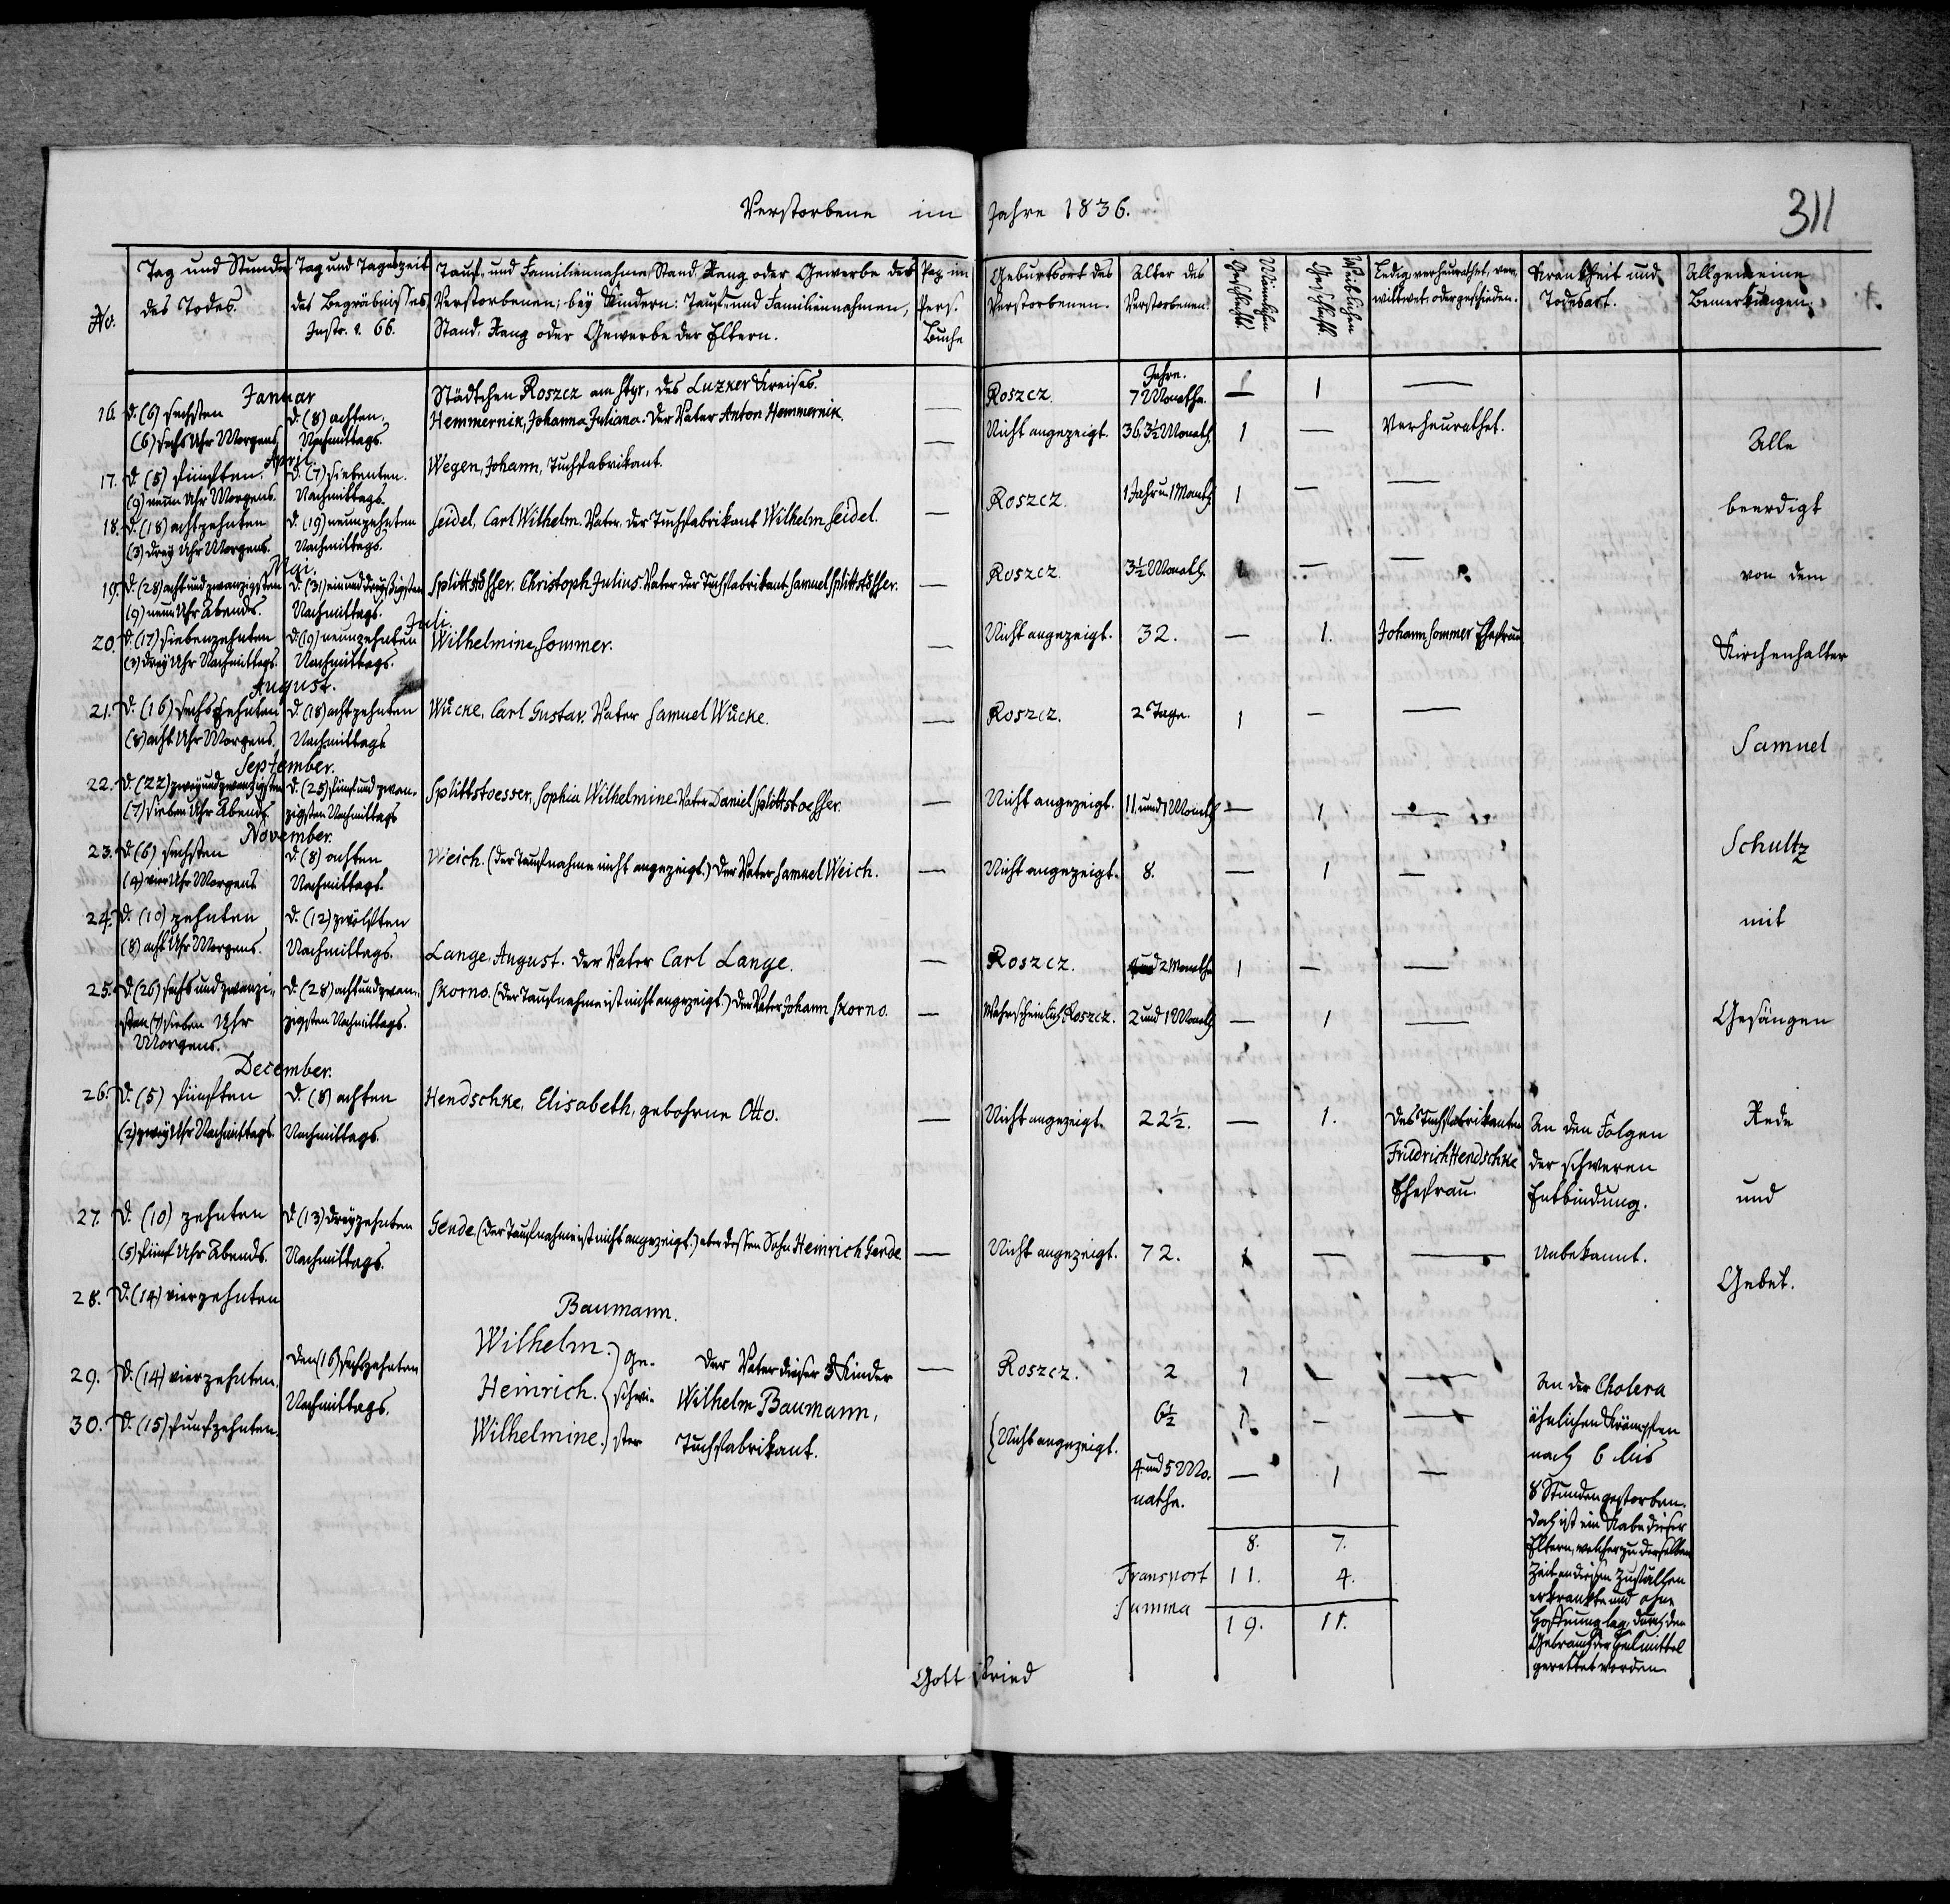 Verstorbene im Jahre 1836.
311
No.
Tag und Stunde des Todes.
Tag und Tageszeit des Begräbnisses Instr. § 66.
Tauf- und Familiennahme, Stand, Rang oder Gewerbe des Verstorbenen; bey Kindern: Tauf- und Familiennahmen, Stand, Rang oder Gewerbe der Eltern.
Pag. im Pers. Buche
Geburtsort des Verstorbenen.
Alter des Verstorbenen.
Männlichen Geschlechts.
Weiblichen Geschlechts.
Ledig, verheurathet, verwittwet oder geschieden.
Krankheit und Todesart.
Allgemeine Bemerkungen.
Januar
Städtchen Roszcz am Styr, des Luzker Kreises.
Jahre.
16. d. (6) sechsten d. (8) achten. Hemmernik, Johanna Juliana. Der Vater Anton Hemmernik. — Roszcz. 7 Monathe. — 1 —
(6) sechs Uhr Morgens. Nachmittags.
April.
17. d. (5) fünften. d. (7) siebenten. Wegen, Johann, Tuchfabrikant. — Nicht angezeigt. 36. 3½ Monath. 1 — Verheurathet.
(9) neun Uhr Morgens. Nachmittags.
18. d. (18) achtzehnten d. (19) neunzehnten Seidel, Carl Wilhelm. Vater, der Tuchfabrikant Wilhelm Seidel. — Roszcz. 1 Jahr u. 1 Monath 1 — —
(3) drey Uhr Morgens. Nachmittags.
Mai.
19. d. (28) acht und zwanzigsten d. (31) ein und dreyßigsten Splittstösser, Christoph Julius. Vater der Tuchfabrikant Samuel Splittstösser. — Roszcz 3½ Monath. 1 — —
(9) neun Uhr Abends. Nachmittags.
Juli.
20. d. (17) siebenzehnten d. (19) neunzehnten Wilhelmine Sommer. — Nicht angezeigt. 32. — 1. Johann Sommer Ehefrau
(3) drey Uhr Nachmittags. Nachmittags.
August.
21. d. (16) sechszehnten d. (18) achtzehnten Wücke, Carl Gustav. Vater Samuel Wücke. — Roszcz. 2 Tage. 1 — —
(8) acht Uhr Morgens. Nachmittags
September.
22. d. (22) zwey und zwanzigsten d. (25) fünf und zwan- Splittstoesser, Sophia Wilhelmine. Vater Daniel Splittstoesser. — Nicht angezeigt. 11. und 1 Monath — 1 —
(7) sieben Uhr Abends zigsten Nachmittags
November.
23. d. (6) sechsten d. (8) achten Weich. (Der Taufnahme nicht angezeigt.) Der Vater Samuel Weich. — Nicht angezeigt. 8. — 1 —
(4) vier Uhr Morgens Nachmittags.
24. d. (10) zehnten d. (12) zwölften Lange, August. Der Vater Carl Lange. — Roszcz. 2 Monathe 1 — —
(8) acht Uhr Morgens. Nachmittags.
25. d. (26) sechs und zwanzi- d. (28) acht und zwan- Skorno. (Der Taufnahme ist nicht angezeigt.) Der Vater Johann Skorno. — Wahrscheinlich Roszcz. 2 und 1 Monath — 1 —
sten (7) sieben Uhr zigsten Nachmittags.
Morgens.
December.
26. d. (5) fünften d. (8) achten Hendschke, Elisabeth, gebohrne Otto. — Nicht angezeigt. 22½. — 1. Des Tuchfabrikanten Friedrich Hendschke Ehefrau. An den Folgen der schweren Entbindung.
(2) zwey Uhr Nachmittags. Nachmittags.
27. d. (10) zehnten d. (13) dreyzehnten Gende. (Der Taufnahme ist nicht angezeigt.) aber dessen Sohn Heinrich Gende. — Nicht angezeigt. 72. 1 — — Unbekannt.
(5) fünf Uhr Abends. Nachmittags.
Baumann.
28. d. (14) vierzehnten Wilhelm.
29. d. (14) vierzehnten. Heinrich.
30. d. (15) funfzehnten. Wilhelmine.
den (16) sechszehnten
Nachmittags.
Ge-
schwi-
ster
Der Vater dieser 3 Kinder
Wilhelm Baumann,
Tuchfabrikant.
— Roszcz. 2 1 — —
Nicht angezeigt.
6½ 1. — —
4. und 5 Mo-
nathe. — 1 —
An der Cholera
ähnlichen Krämpfen
nach 6 bis
8 Stunden gestorben.
Doch ist ein Knabe dieser
Eltern, welcher zu derselben
Zeit an diesen Zufällen
erkrankte und ohne
Hoffnung lag, durch den
Gebrauch der Heilmittel
gerettet worden.
8. 7.
Transport 11. 4.
Summa 19. 11.
Alle
beerdigt
von dem
Kirchenhalter
Samuel
Schultz
mit
Gesängen
Rede
und
Gebet.
Gottfried